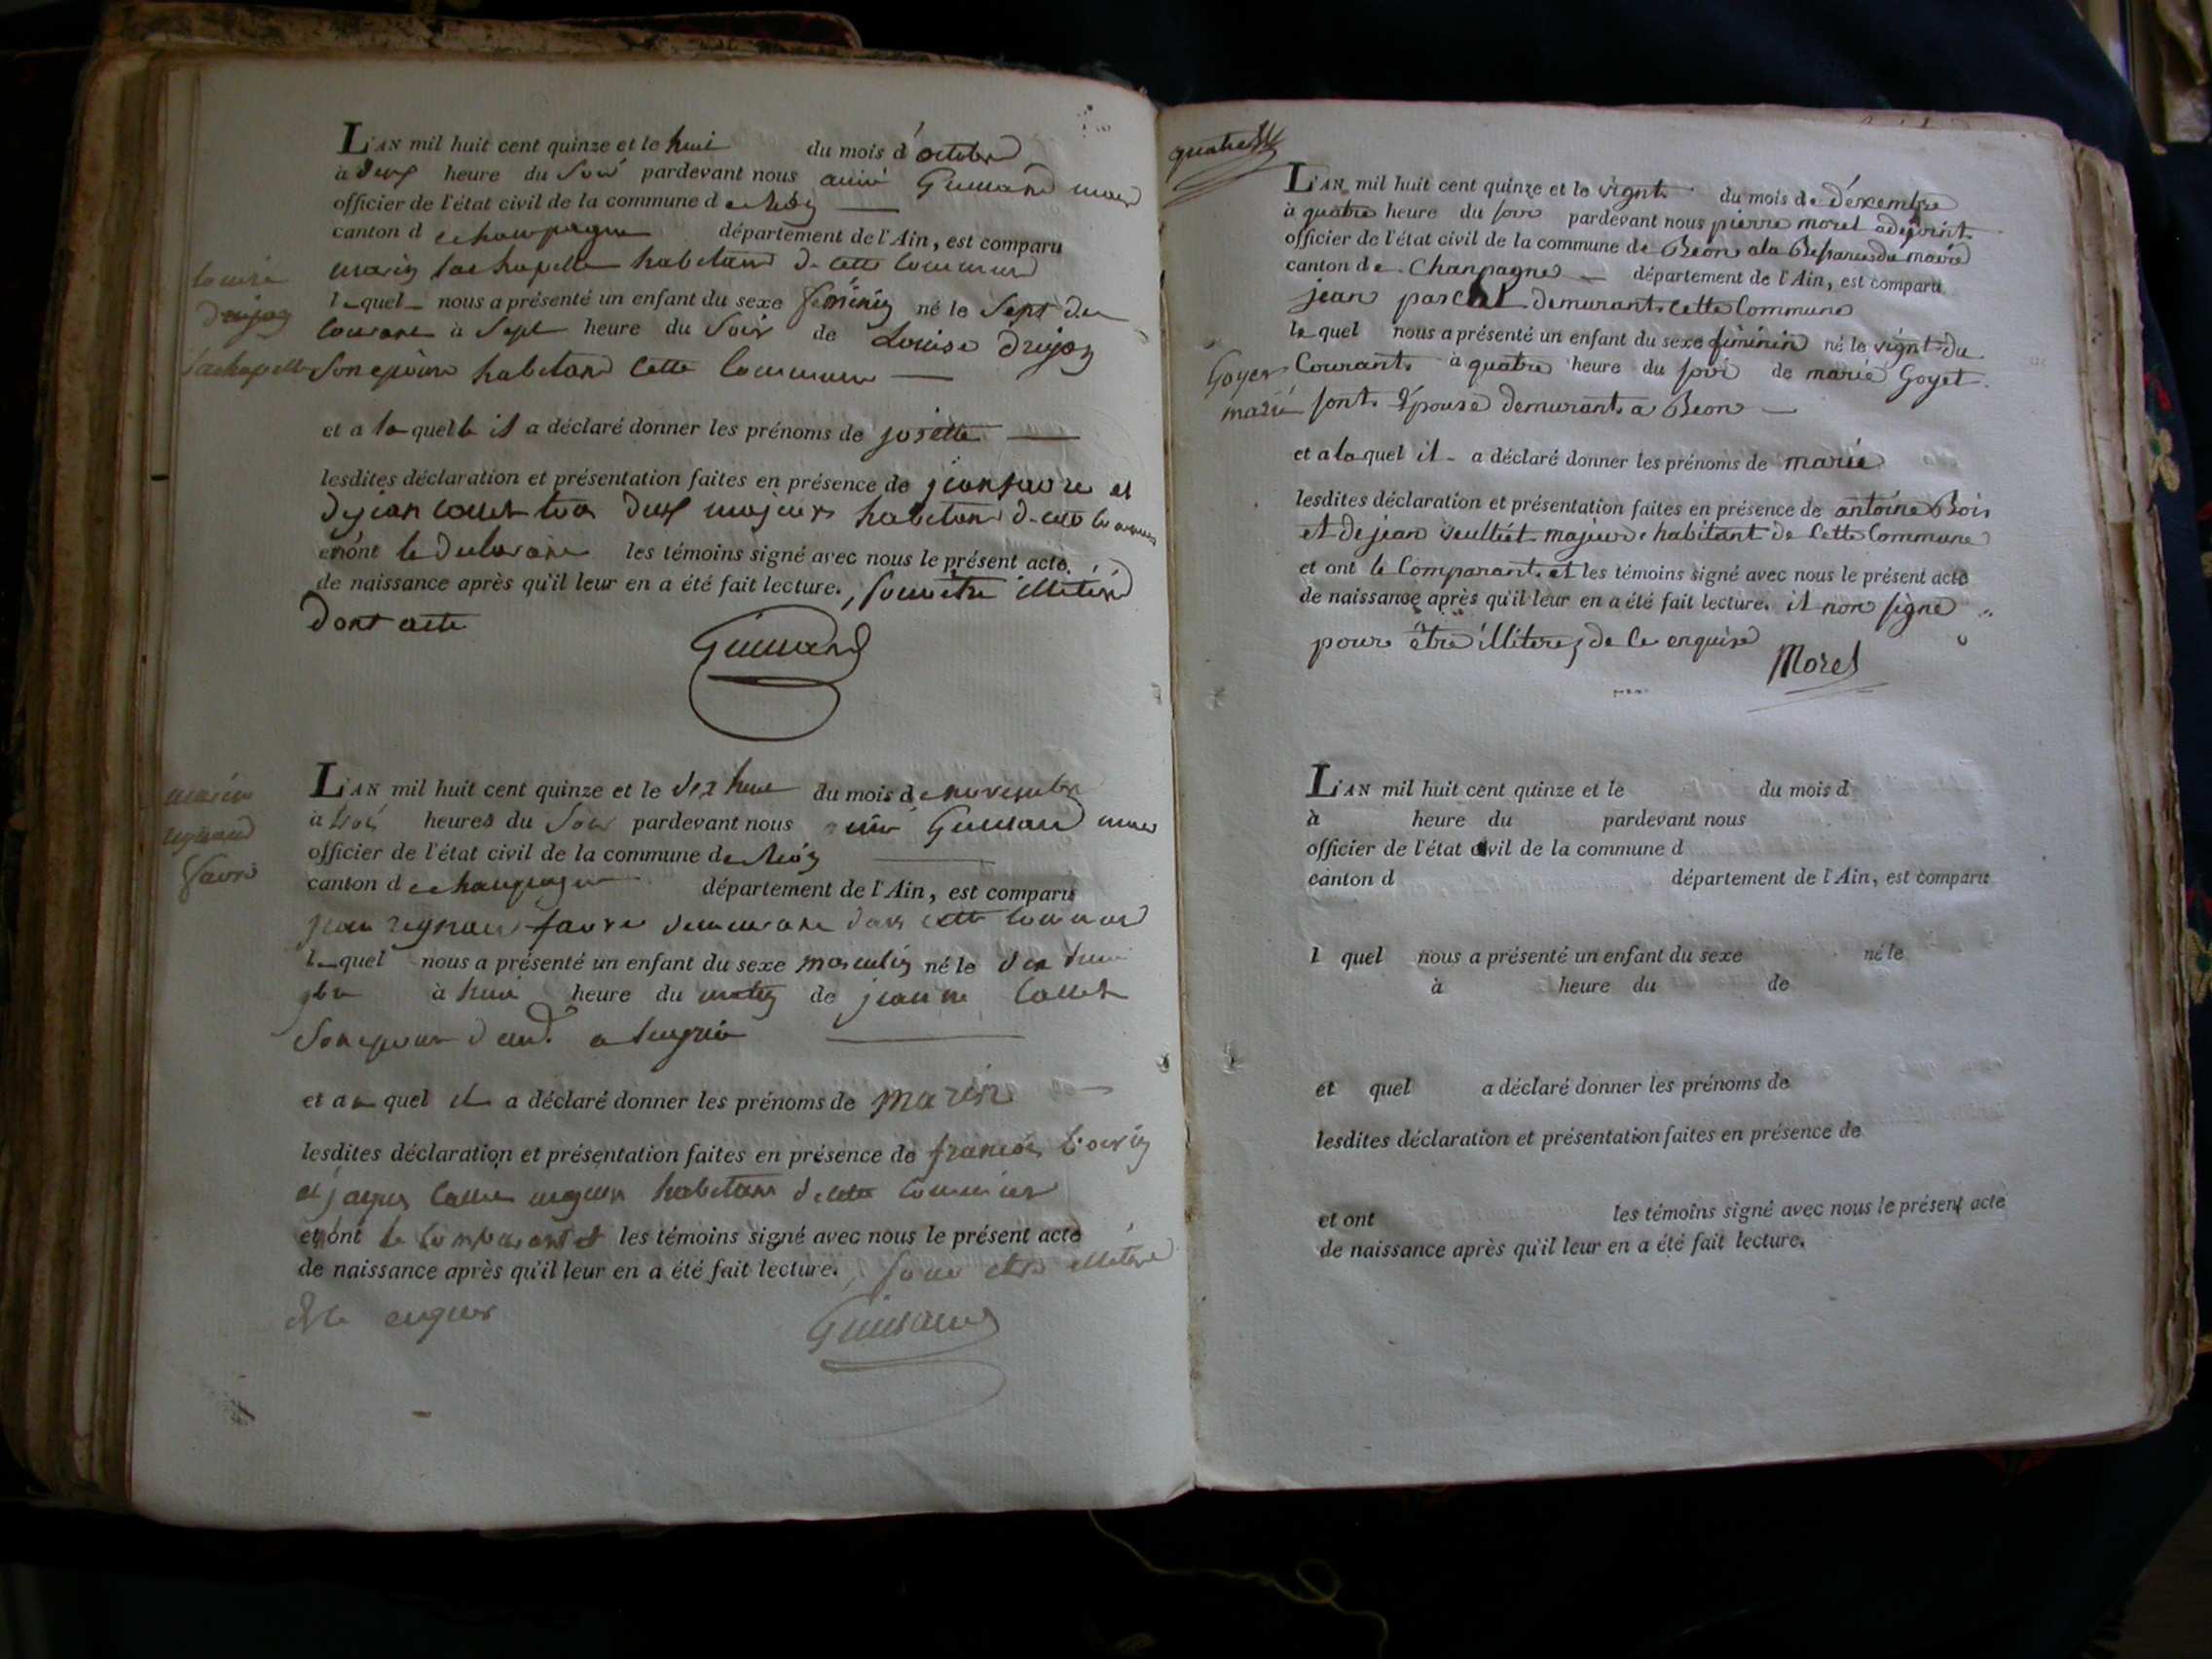 L'AN mil huit cent quinze et le huit du mois d'octobre
à deux heure du soir pardevant nous aimé Guilland maire
officier de l'état civil de la commune de Béon
canton de champagne département de l'Ain, est comparu
marin lachapelle habitant de cette commune
louise
lequel nous a présenté un enfant du sexe féminin né le sept du
drujon
courant à sept heure du soir de Louise drujon
lachapelle
son epouse habitant cette commune
et a laquelle il a déclaré donner les prénoms de josette
lesdites déclaration et présentation faites en présence de jean favre et
de jean collet tous deux majeurs habitant de cette commune
et n'ont le declarant les témoins signé avec nous le présent acte
de naissance après qu'il leur en a été fait lecture, pour etre illitéré
dont acte
Guilland
L'AN mil huit cent quinze et le dix huit du mois de novembre
marin
à trois heures du soir pardevant nous aimé Guilland maire
reynaud
officier de l'état civil de la commune de Béon
favre
canton de champagne département de l'Ain, est comparu
jean reynaud favre demeurant dans cette commune
lequel nous a présenté un enfant du sexe masculin né le dix huit
9bre à huit heure du matin de jeanne Collet
son epouse demt. a
et auquel il a déclaré donner les prénoms de marin
lesdites déclaration et présentation faites en présence de francois
et jaques collet majeurs habitant de cette commune
et n'ont le comparant et les témoins signé avec nous le présent acte
de naissance après qu'il leur en a été fait lecture, pour etre illitéré
de ce enquis
Guilland
quatre
L'AN mil huit cent quinze et le vignt du mois de déxembre
à quatre heure du soir pardevant nous pierre morel adejoint
officier de l'état civil de la commune de Béon a la du maire
canton de Chanpagne département de l'Ain, est comparu
jean pascal demurant cette Commune
le quel nous a présenté un enfant du sexe féminin né le vignt du
Goyet
Courant à quatre heure du soir de marie Goyet
marie
sont Epouse demurant a Béon
et a laquel il a déclaré donner les prénoms de marie
lesdites déclaration et présentation faites en présence de antoine Bois
et de jean veulliet majeur habitant de Cette Commune
et ont le Comparant et les témoins signé avec nous le présent acte
de naissance après qu'il leur en a été fait lecture. il non signé
pour être illitere, de ce enquise
Morel
L'AN mil huit cent quinze et le du mois d
à heure du pardevant nous
officier de l'état civil de la commune d
canton d département de l'Ain, est comparu
l quel nous a présenté un enfant du sexe né le
à heure du de
et quel a déclaré donner les prénoms de
lesdites déclaration et présentation faites en présence de
et ont les témoins signé avec nous le présent acte
de naissance après qu'il leur en a été fait lecture.